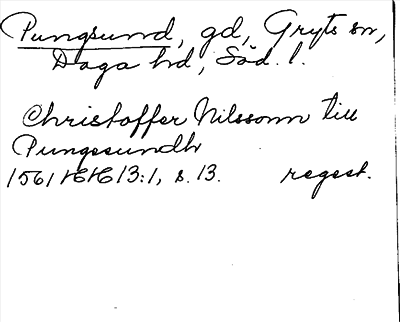 Pungsund, gd, Gryts sn,
Daga hd, Söd. l.
Christoffer Nilssonn till
Pungssundh
1561 HH 13:1, s. 13. regest.